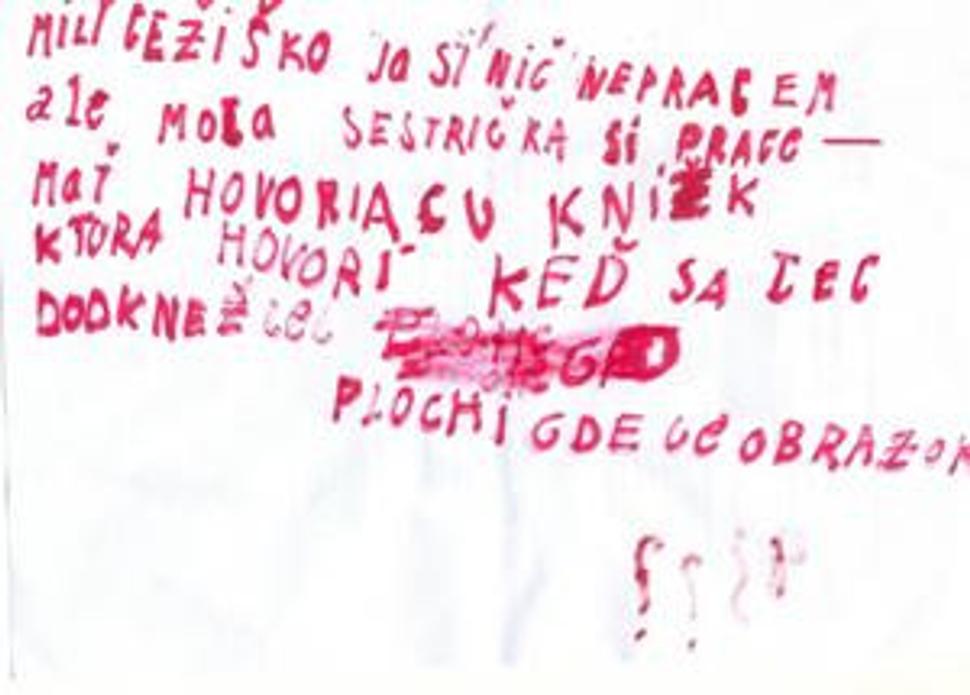 MILÍ CEŽiŠKO Ja SI NIČ NEPRACEM
ale MOCa SESTRIČKA Si PRACC —
MaŤ HOVORIACU KNiŽK
KTORA HOVORÍ KEĎ SA CEC
DODKNEŽ CEC
PLOCHi GDE CC OBRAZOK